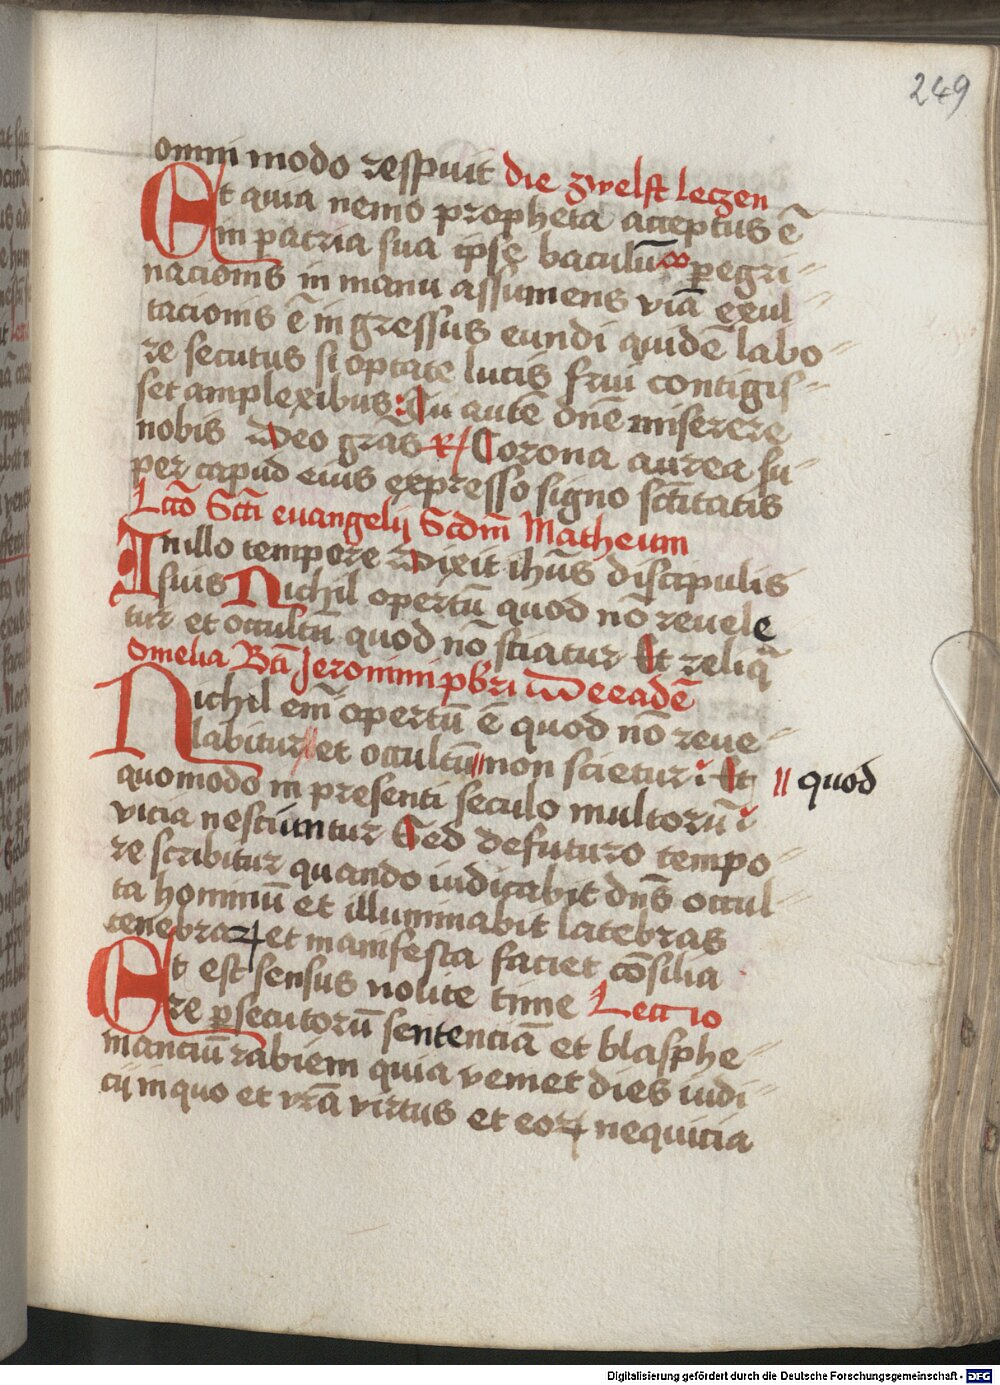 249
omni modo respuit die zwelft leczen
Et quia nemo propheta acceptus ē
in patria sua ipse baculū peregri
nacionis in manu assumens viā exul
tacionis ē ingressus eundi quidē labo
re secutus si optate lucis frui contigis
set amplexibus: Tu autē dn̄e miserere
nobis Deo gr̄as R/ Corona aurea su
per caput eius expresso signo sc̄titatis
Lcc̄o Sc̄ti euangelij Scd̄m Matheum
In illo tempore Dixit ih̄us discipulis
suis Nichil opertū quod nō revele
tur et occultū quod nō sciatur Et reliq̄
Omelia Bt̄i Jeronimi pb̄ri De eadē
Nichil em̄ opertū ē quod nō reue
labitur et occultū // non scietur: Et // quod
quomodo in presenti seculo multorū
vicia nesciuntur Sed de futuro tempo
re scribitur quando iudicabit dn̄s occul
ta hominū et illuminabit latebras
tenebraꝝ et manifesta faciet cōsilia
Et est sensus nolite time Lectio
re ꝑsecutorū sentenciā et blasphe
manciū rabiem quia veniet dies iudi
cij in quo et vr̄a virtus et eoꝝ nequicia
Digitalisierung gefördert durch die Deutsche Forschungsgemeinschaft - DFG